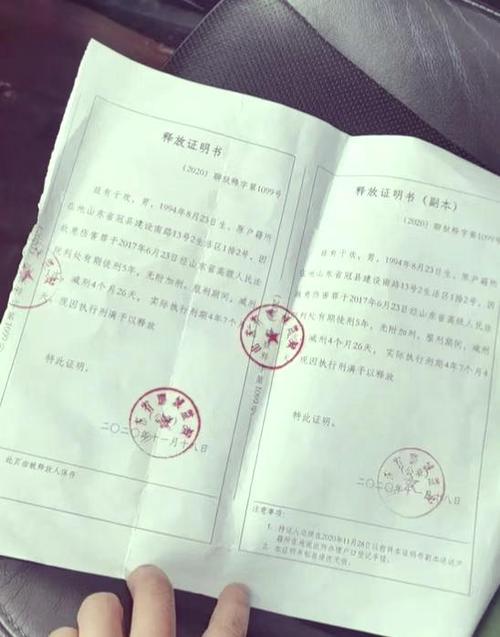 释放证明书
（2020）聊狱释字第1099号
兹有于欢，男，1994年8月23日生，原户籍所
在地山东省冠县建设南路13号2生活区1排2号，因
故意伤害罪于2017年6月23日经山东省高级人民法
院判处有期徒刑5年，无附加刑。服刑期间，减刑
减刑4个月26天，实际执行刑期4年7个月4
现因执行刑满予以释放
特此证明。
二〇二〇年十一月十八日
此页由被释放人保存
释放证明书（副本）
（2020）聊狱释字第1099号
兹有于欢，男，1994年8月23日生，原户籍所
在地山东省冠县建设南路13号2生活区1排2号，因
故意伤害罪于2017年6月23日经山东省高级人民法
判处有期徒刑5年，无附加刑。服刑期间，
减刑4个月26天，实际执行刑期4年7个月4
现因执行刑满予以释放
特此证明。
二〇二〇年 月十八日
注意事项：
1、持证人应限在2020年11月28日以前将本证明书副本送达户
籍所在地派出所办理户口登记手续。
2、本证明书如有涂改无效。